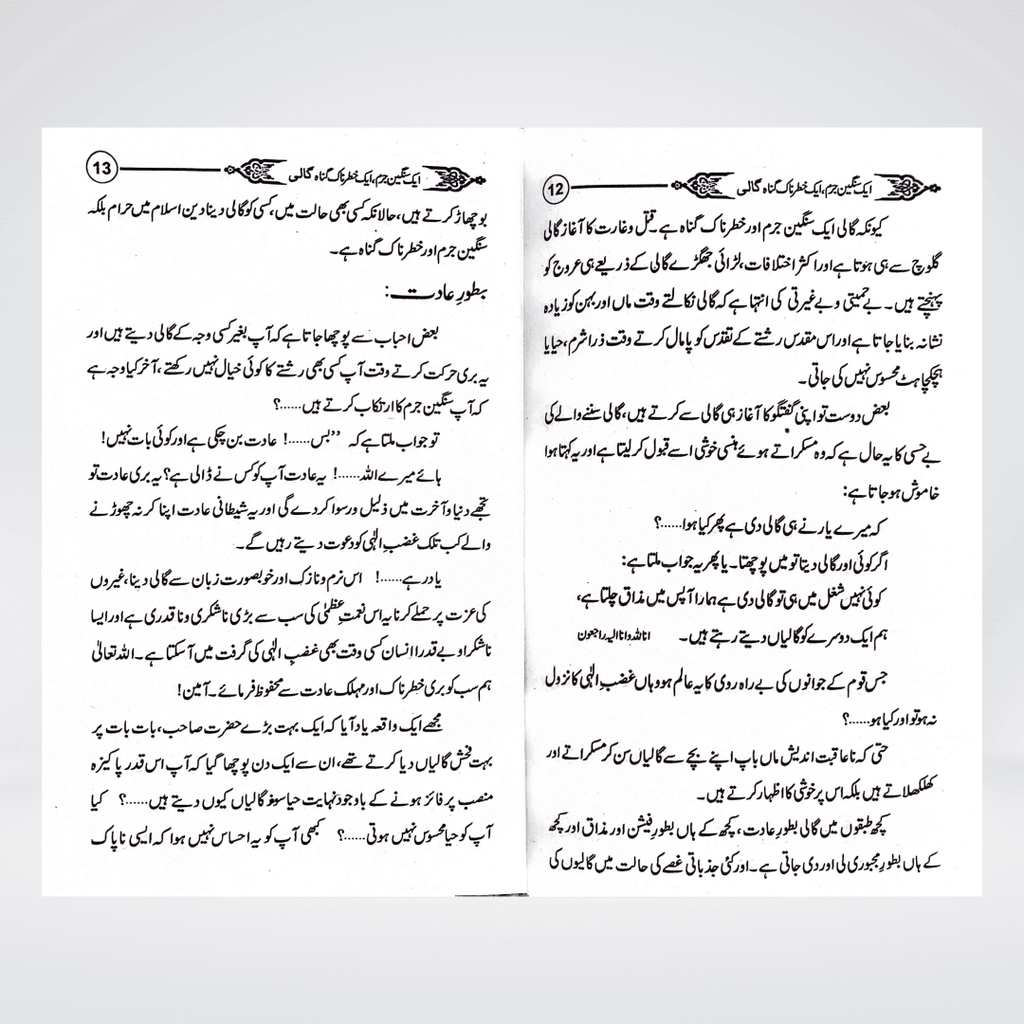 ایک سنگین جرم، ایک خطرناک گناہ گالی 12
کیونکہ گالی ایک سنگین جرم اور خطرناک گناہ ہے۔ قتل وغارت کا آغاز گالی
گلوچ سے ہی ہوتا ہے اور اکثر اختلافات، لڑائی جھگڑے گالی کے ذریعے ہی عروج کو
پہنچتے ہیں۔ بے حمیتی و بے غیرتی کی انتہا ہے کہ گالی نکالتے وقت ماں اور بہن کو زیادہ
نشانہ بنایا جاتا ہے اور اس مقدس رشتے کے تقدّس کو پامال کرتے وقت ذرا شرم، حیا یا
ہچکچاہٹ محسوس نہیں کی جاتی۔
بعض دوست تو اپنی گفتگو کا آغاز ہی گالی سے کرتے ہیں، گالی سننے والے کی
بے حسی کا یہ حال ہے کہ وہ مسکراتے ہوئے ہنسی خوشی اسے قبول کرلیتا ہے اور یہ کہتا ہوا
خاموش ہوجاتا ہے:
کہ میرے یار نے ہی گالی دی ہے پھر کیا ہوا......؟
اگر کوئی اور گالی دیتا تو میں پوچھتا۔ یا پھر یہ جواب ملتا ہے:
کوئی نہیں شغل میں ہی تو گالی دی ہے ہمارا آپس میں مذاق چلتا ہے،
ہم ایک دوسرے کو گالیاں دیتے رہتے ہیں۔ انا للہ وانا الیہ راجعون
جس قوم کے جوانوں کی بے راہ روی کا یہ عالم ہو وہاں غضبِ الٰہی کا نزول
نہ ہو تو اور کیا ہو......؟
حتی کہ ناعاقبت اندیش ماں باپ اپنے بچے سے گالیاں سن کر مسکراتے اور
کھلکھلاتے ہیں بلکہ اس پر خوشی کا اظہار کرتے ہیں۔
کچھ طبقوں میں گالی بطورِ عادت، کچھ کے ہاں بطورِ فیشن اور مذاق اور کچھ
کے ہاں بطورِ مجبوری لی اور دی جاتی ہے۔ اور کئی جذباتی غصے کی حالت میں گالیوں کی
ایک سنگین جرم، ایک خطرناک گناہ گالی 13
بوچھاڑ کرتے ہیں، حالانکہ کسی بھی حالت میں، کسی کو گالی دینا دین اسلام میں حرام بلکہ
سنگین جرم اور خطرناک گناہ ہے۔
بطورِ عادت:
بعض احباب سے پوچھا جاتا ہے کہ آپ بغیر کسی وجہ کے گالی دیتے ہیں اور
یہ بری حرکت کرتے وقت آپ کسی بھی رشتے کا کوئی خیال نہیں رکھتے، آخر کیا وجہ ہے
کہ آپ سنگین جرم کا ارتکاب کرتے ہیں......؟
تو جواب ملتا ہے کہ ”بس......! عادت بن چکی ہے اور کوئی بات نہیں!
ہائے میرے اللہ......! یہ عادت آپ کو کس نے ڈالی ہے؟ یہ بری عادت تو
تجھے دنیا و آخرت میں ذلیل و رسوا کر دے گی اور یہ شیطانی عادت اپنا کر نہ چھوڑنے
والے کب تلک غضبِ الٰہی کو دعوت دیتے رہیں گے۔
یاد رہے......! اس نرم و نازک اور خوبصورت زبان سے گالی دینا، غیروں
کی عزت پر حملے کرنا یہ اس نعمتِ عظمیٰ کی سب سے بڑی ناشکری و ناقدری ہے اور ایسا
ناشکرا و بے قدرا انسان کسی وقت بھی غضبِ الٰہی کی گرفت میں آسکتا ہے۔ اللہ تعالیٰ
ہم سب کو بری خطرناک اور مہلک عادت سے محفوظ فرمائے۔ آمین!
مجھے ایک واقعہ یاد آیا کہ ایک بہت بڑے حضرت صاحب، بات بات پر
بہت فحش گالیاں دیا کرتے تھے، ان سے ایک دن پوچھا گیا کہ آپ اس قدر پاکیزہ
منصب پر فائز ہونے کے باوجود نہایت حیا سوز گالیاں کیوں دیتے ہیں......؟ کیا
آپ کو حیا محسوس نہیں ہوتی......؟ کبھی آپ کو یہ احساس نہیں ہوا کہ ایسی ناپاک